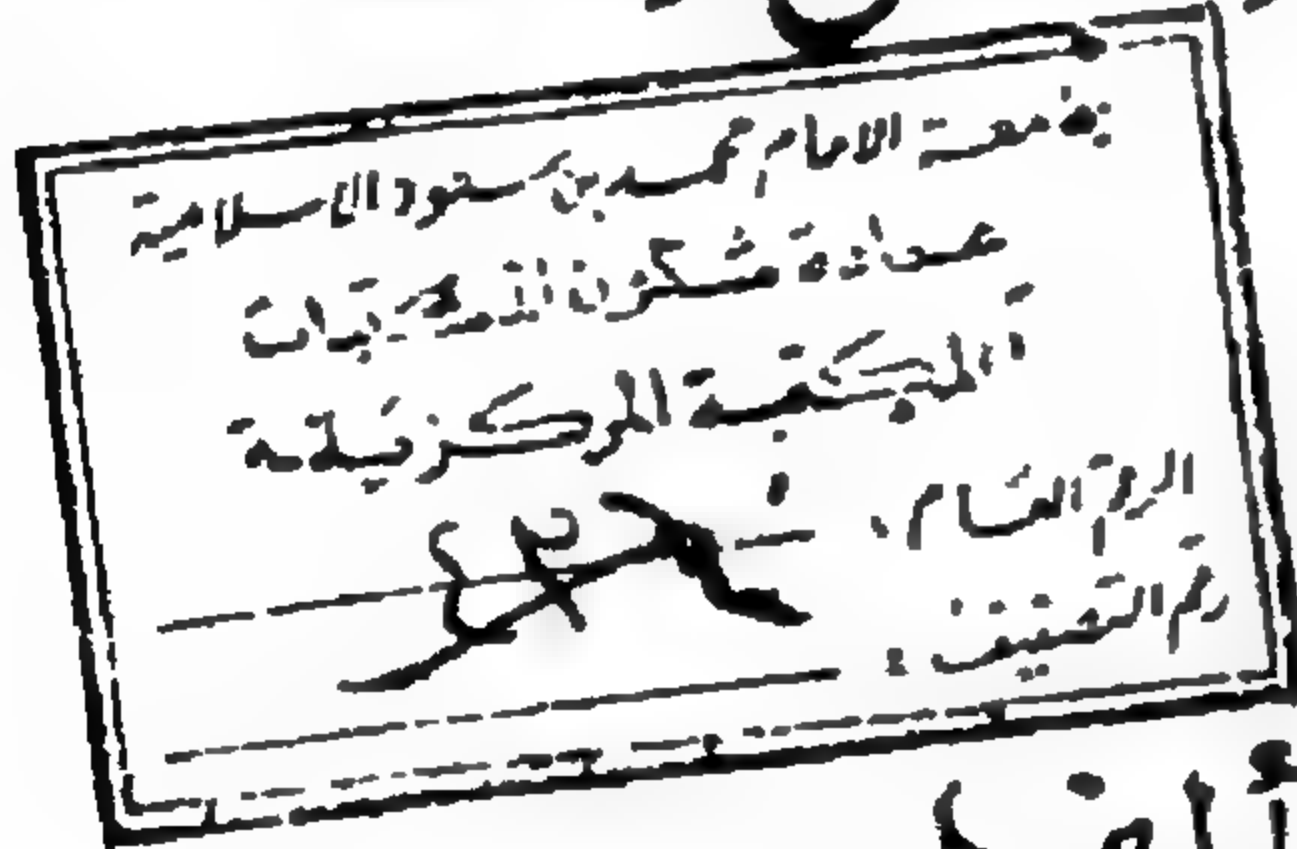 جامعة الامام محمد بن سعود الاسلامية
عمادة شئون المكتبات
المكتبة المركزية
الرقم العام :
رقم التصنيف :